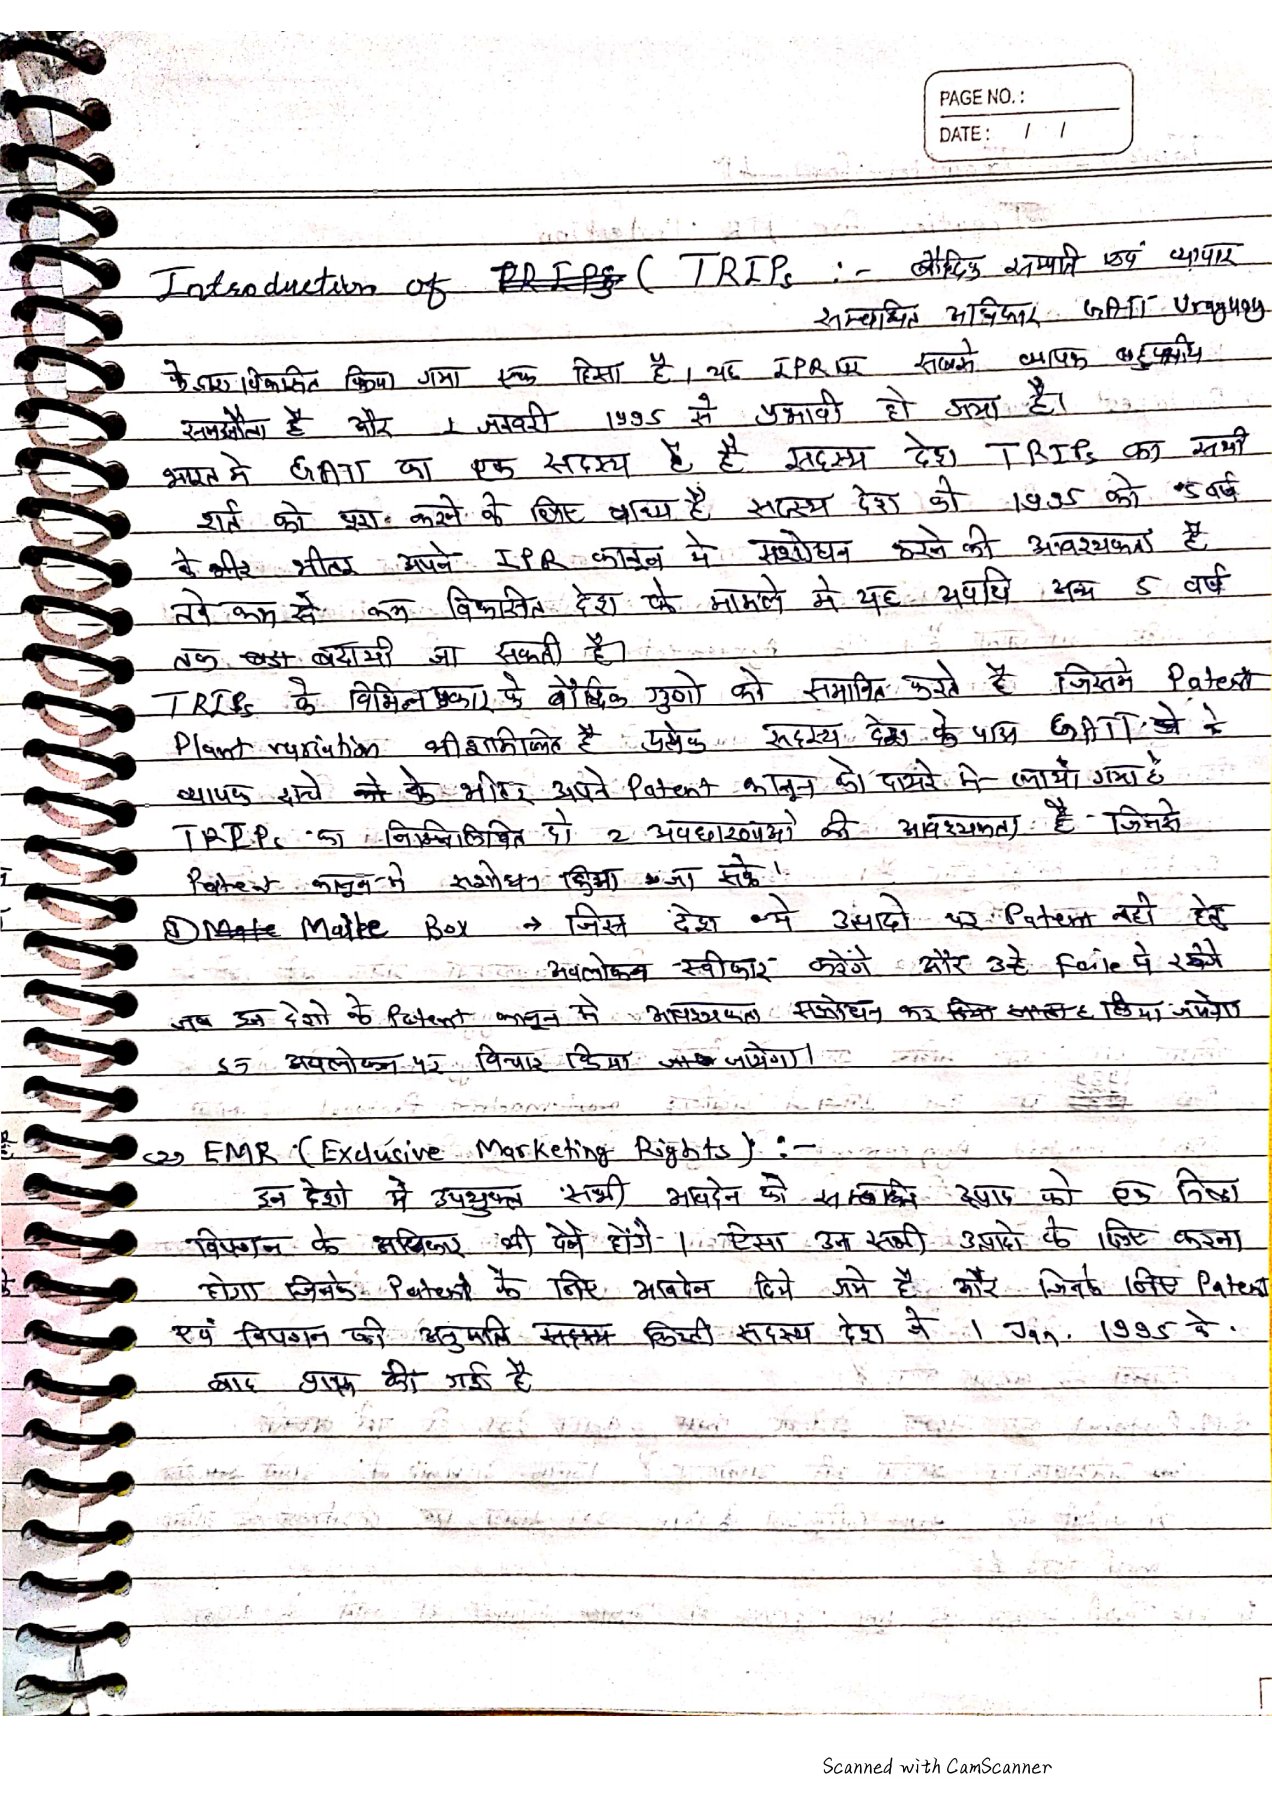 PAGE NO.:
DATE: / /
Introduction of TRIPs ( TRIPs :- बौद्धिक सम्पति एवं व्यापार
सम्बन्धित अधिकार GATT Uruguay
के द्वारा विकसित किया गया एक हिसा है। यह IPR पर सबसे व्यापक बहुपक्षीय
समझौता है और 1 जनवरी 1995 से प्रभावी हो गया है।
भारत मे GATT का एक सदस्य है है सदस्य देश TRIPs का सभी
शर्त को पूरा करने के लिए बाध्य है सदस्य देश को 1995 को 5 वर्ष
के भीतर अपने IPR कानून मे संशोधन करने की आवश्यकता है
कम से कम विकासित देश के मामले मे यह अवधि अन्य 5 वर्ष
तक बढायी जा सकती है।
TRIPs के विभिन्न प्रकार के बौद्धिक गुणो को समाहित करते है जिसमे Patent
Plant variation भी शामिलित है प्रत्येक सदस्य देश के पास GATT के
व्यापक ढाचे के भीतर अपने Patent कानून को दायरे मे लाया गया है
TRIPs का निम्नलिखित दो 2 अवधारणाओ की आवश्यकता है जिनके
Patent कानून मे संशोधन किया जा सके।
① Mate Mailte Box → जिस देश मे उत्पादो पर Patent नही हेतु
अवलोकन स्वीकार करेंगे और उन्हे Faile मे रखेंगे
जब इन देशो के Patent कानून मे आवश्यकता संशोधन कर लिया जायेगा
इन अवलोकन पर विचार किया जायेगा।
(2) EMR (Exclusive Marketing Rights) :-
इन देशो मे उपयुक्त सभी आवदेन को सम्बन्धित उत्पाद को एक
विपणन के अधिकार भी देने होंगे। ऐसा उन सभी उत्पादो के लिए करना
होगा जिनके Patent के लिए आवदेन दिये गये है और जिनके लिए Patent
एवं विपणन की अनुमति सदस्य किसी सदस्य देश ने 1 Jan. 1995 के
बाद प्राप्त की गई है
Scanned with CamScanner